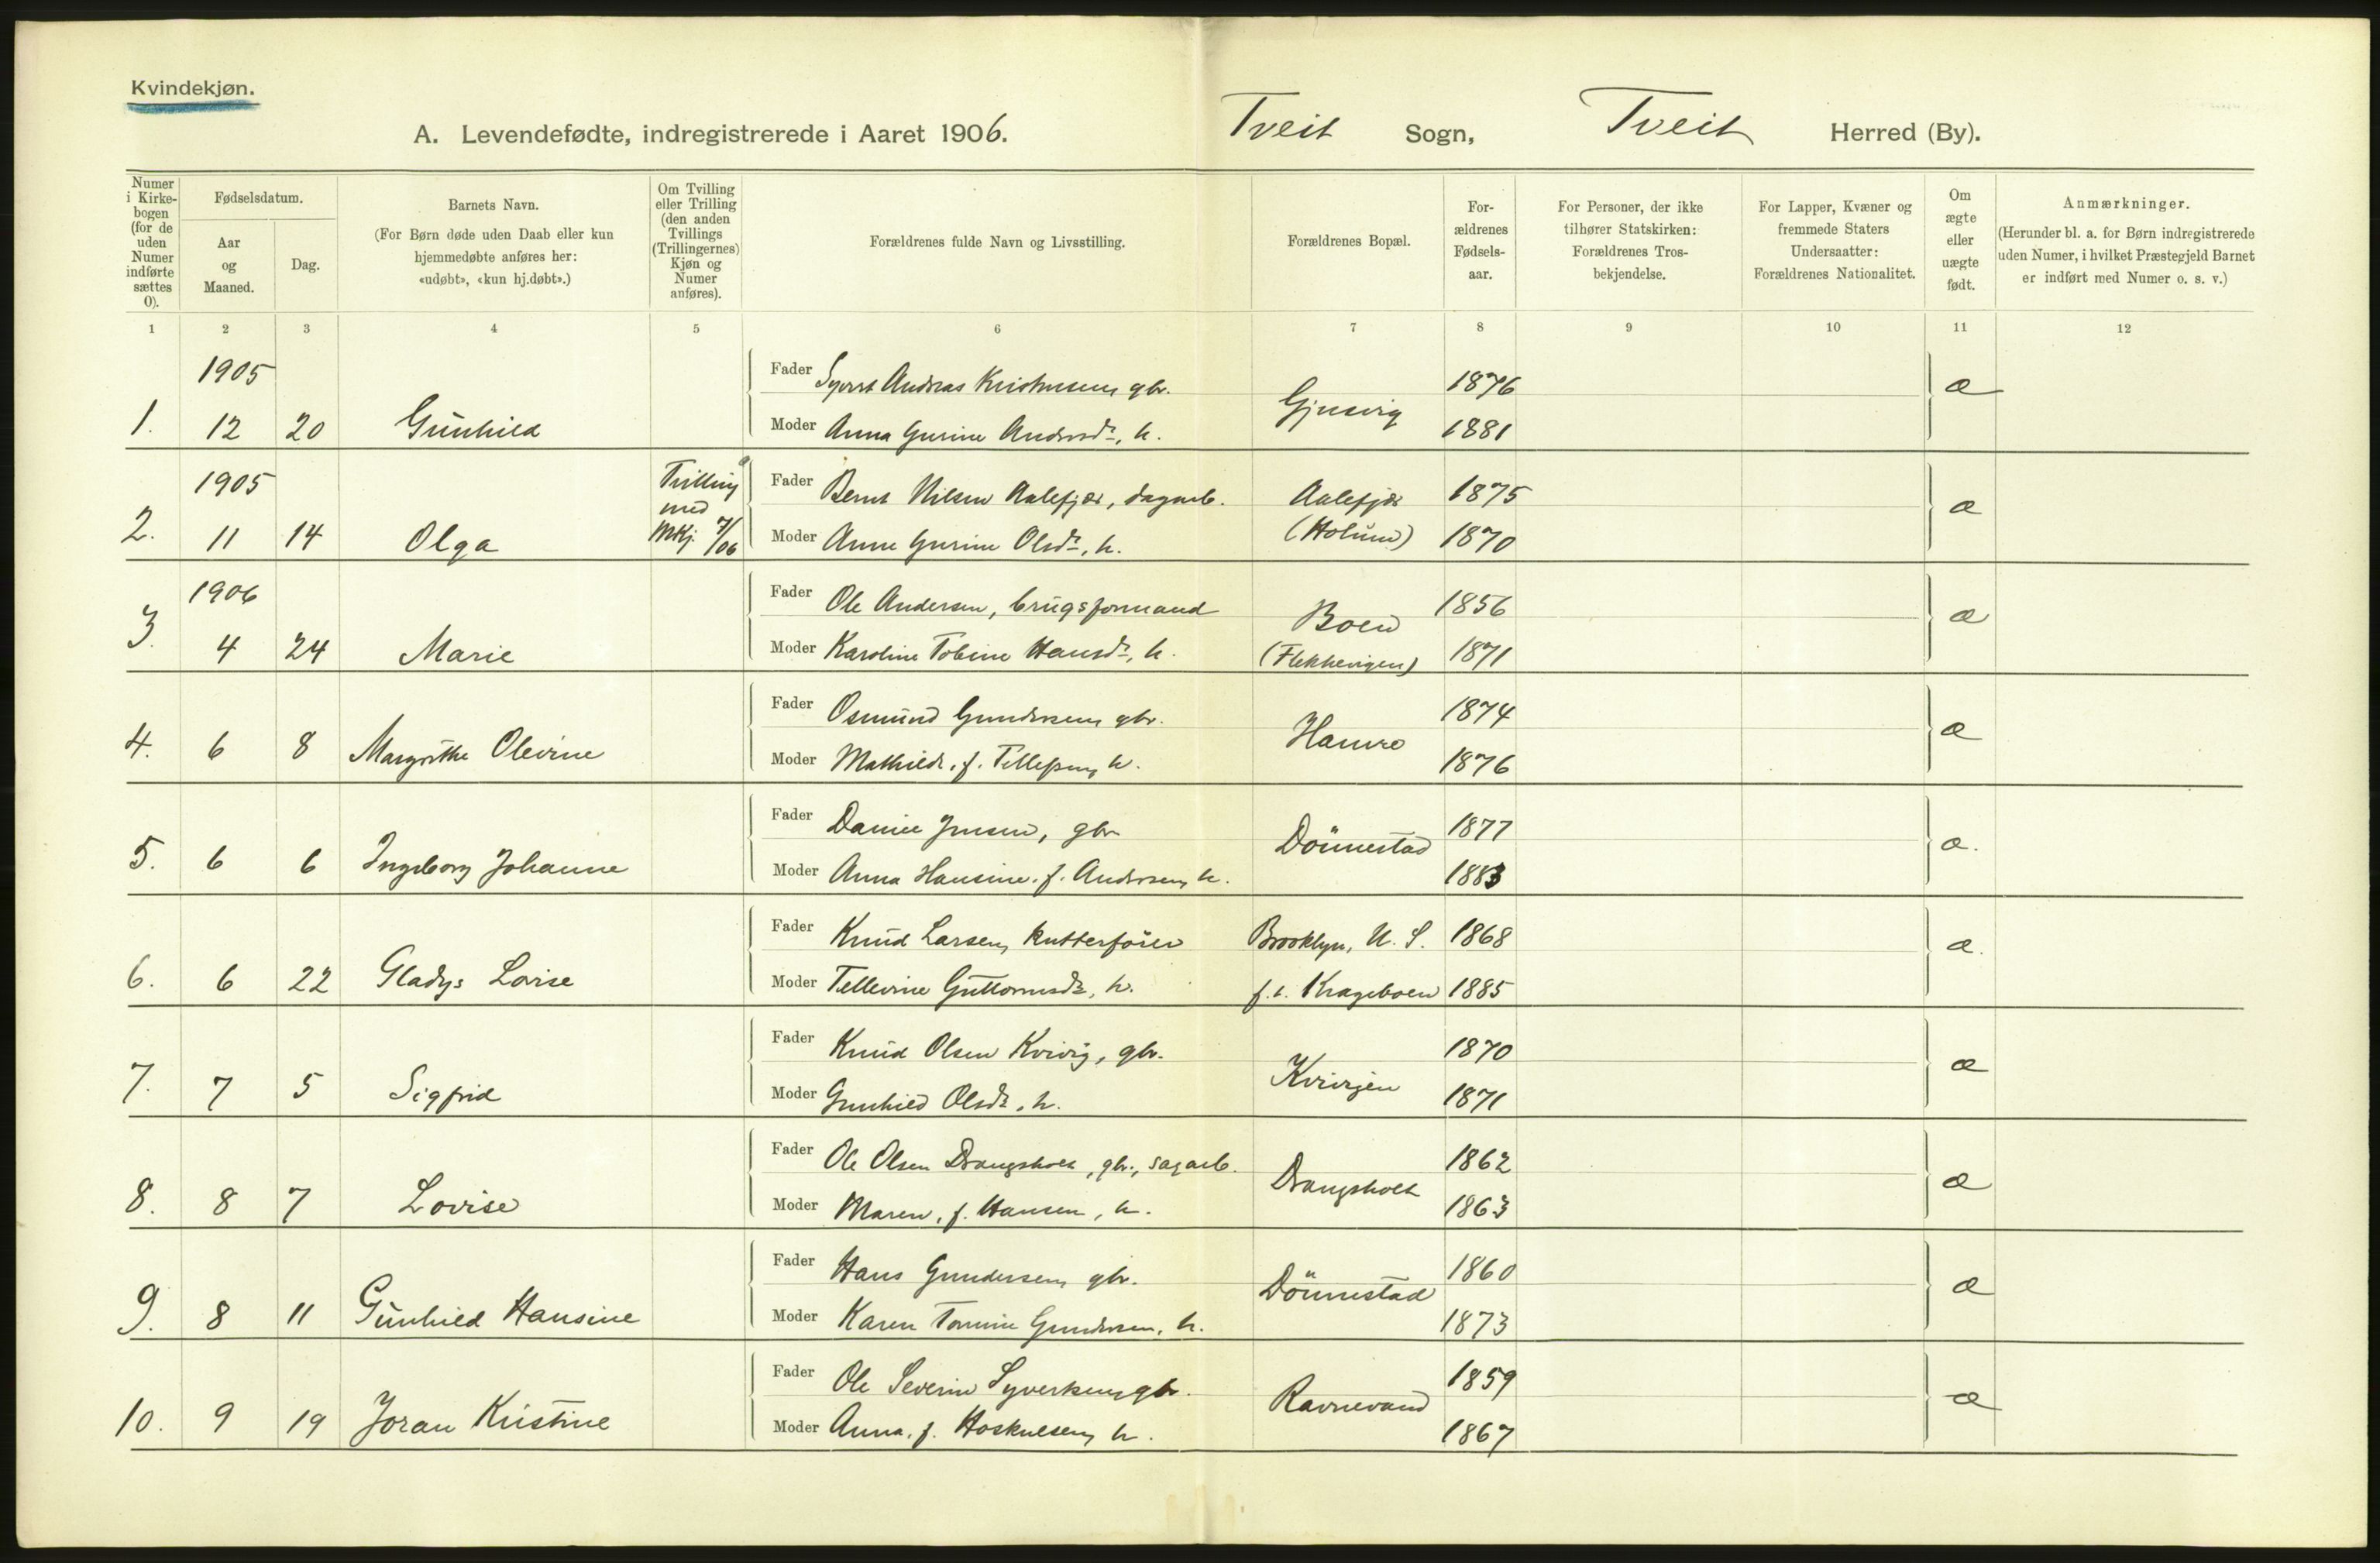 Kvindekjøn.
A. Levendefødte, indregistrerede i Aaret 1906. Tveit Sogn, Tveit Herred (By).
Numer i Kirkebogen (for de uden Numer indførte sættes 0).
Fødselsdatum.
Aar og Maaned.
Dag.
Barnets Navn.
(For Børn døde uden Daab eller kun hjemmedøbte anføres her: «udøbt», «kun hj.døbt».)
Om Tvilling eller Trilling (den anden Tvillings (Trillingernes) Kjøn og Numer anføres).
Forældrenes fulde Navn og Livsstilling.
Forældrenes Bopæl.
For-ældrenes Fødsels-aar.
For Personer, der ikke tilhører Statskirken: Forældrenes Tros-bekjendelse.
For Lapper, Kvæner og fremmede Staters Undersaatter: Forældrenes Nationalitet.
Om ægte eller uægte født.
Anmærkninger.
(Herunder bl. a. for Børn indregistrerede uden Numer, i hvilket Præstegjeld Barnet er indført med Numer o. s. v.)
1 2 3 4 5 6 7 8 9 10 11 12
1905 Fader Syvert Andreas Kristensen, gbr. 1876 æ
1. 12 20 Gunhild Moder Anna Gurine Andersdr, h. Gjusvig 1881
1905 Tvilling Fader Bernt Nilsen Aalefjær, dagarb. Aalefjær 1875 æ
med
2. 11 14 Olga MKj. 7/06 Moder Anne Gurine Olsdr, h. (Holum) 1870
1906 Fader Ole Andersen, brugsformand Boen 1856 æ
3. 4 24 Marie Moder Karoline Tobine Hansdr, h. (Flekkevigen) 1871
Fader Osmund Gundersen, gbr. Hamre 1874 æ
4. 6 8 Margrethe Olevine Moder Mathilde, f. Tellefsen, h. 1876
Fader Daniel Jensen, gbr Dönnestad 1877 æ.
5. 6 6 Ingeborg Johanne Moder Anna Hansine, f. Andersen, h. 1883
Fader Knud Larsen, kutterförer Brooklyn, U. S. 1868 æ.
6. 6 22 Gladys Lovise Moder Tellevine Guttormsdr, h. f. t. Krageboen 1885
Fader Knud Olsen Kvivig, gbr. 1870 æ
7. 7 5 Sigfrid Moder Gunhild Olsdr, h. Kvivigen 1871
Fader Ole Olsen Drangsholt, gbr., sagarb. Drangsholt 1862 æ
8. 8 7 Lovise Moder Maren, f. Hansen, h. 1863
Fader Hans Gundersen, gbr. Dönnestad 1860 æ
9. 8 11 Gunhild Hansine Moder Karen Tomine Gundersen, h. 1873
Fader Ole Severin Syvertsen, gbr. Ravnevand 1859 æ
10. 9 19 Joran Kristine Moder Anna, f. Hoskulsen, h. 1867